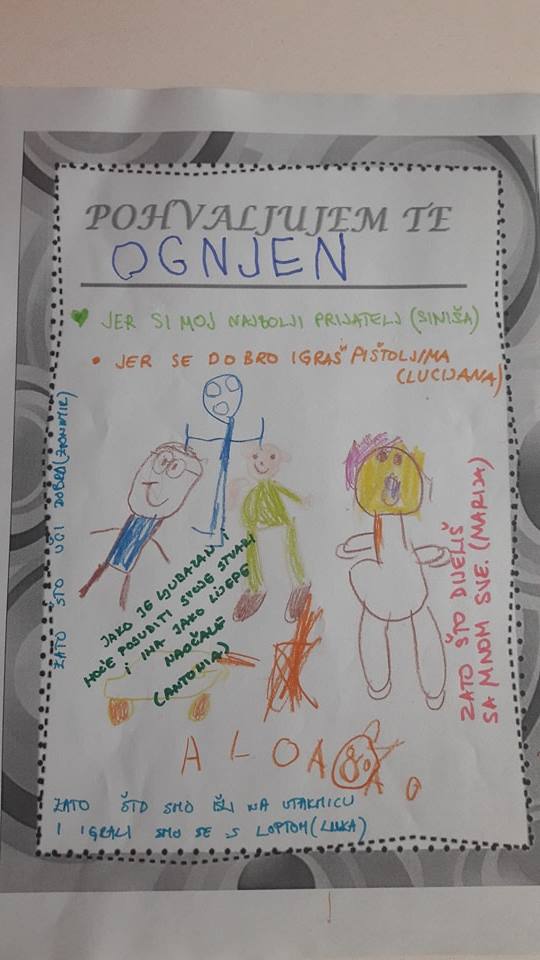 POHVALJUJEM TE
OGNJEN
JER SI MOJ NAJBOLJI PRIJATELJ (SINIŠA)
• JER SE DOBRO IGRAŠ PIŠTOLJIMA
(LUCIJANA)
ZATO ŠTO UČI DOBRO (ZVONIMIR)
JAKO JE LJUBAZAN I
HOĆE POSUDITI SVOJE STVARI
I IMA JAKO LIJEPE
NAOČALE
(ANTONIA)
ZATO ŠTO DIJELIŠ
SA MNOM SVE. (MARIJA)
A L O A
ZATO ŠTO SMO IŠLI NA UTAKMICU
I IGRALI SMO SE S LOPTOM (LUKA)